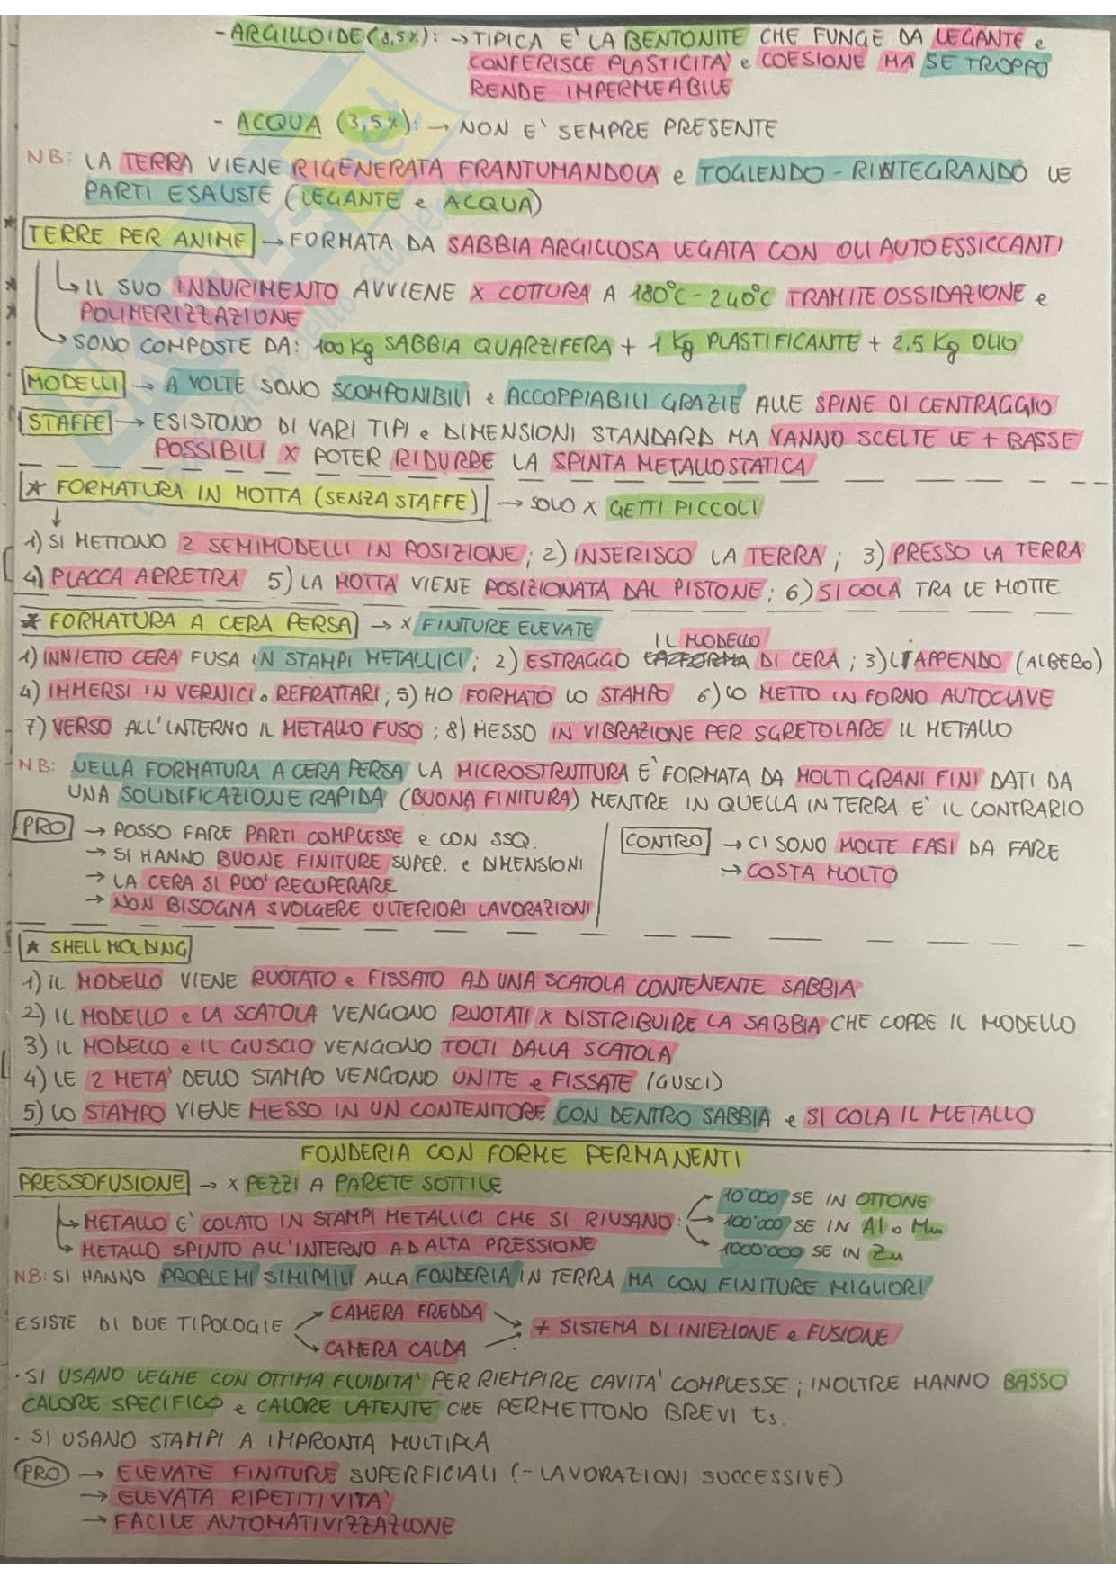 - ARGILLOIDE (8,5%): → TIPICA E' LA BENTONITE CHE FUNGE DA LEGANTE e
CONFERISCE PLASTICITA' e COESIONE MA SE TROPPO
RENDE IMPERMEABILE
- ACQUA (3,5%): → NON E' SEMPRE PRESENTE
NB: LA TERRA VIENE RIGENERATA FRANTUMANDOLA e TOGLENDO - RINTEGRANDO LE
PARTI ESAUSTE (LEGANTE e ACQUA)
* TERRE PER ANIME → FORMATA DA SABBIA ARGILLOSA LEGATA CON OLI AUTOESSICCANTI
↳ IL SUO INDURIMENTO AVVIENE X COTTURA A 180°C - 240°C TRAMITE OSSIDAZIONE e
POLIMERIZZAZIONE
→ SONO COMPOSTE DA: 100 Kg SABBIA QUARZIFERA + 1 Kg PLASTIFICANTE + 2.5 Kg OLIO
MODELLI → A VOLTE SONO SCOMPONIBILI e ACCOPPIABILI GRAZIE ALLE SPINE DI CENTRAGGIO
STAFFE → ESISTONO DI VARI TIPI e DIMENSIONI STANDARD MA VANNO SCELTE LE + BASSE
POSSIBILI X POTER RIDURRE LA SPINTA METALLOSTATICA
* FORMATURA IN MOTTA (SENZA STAFFE) → SOLO X GETTI PICCOLI
1) SI METTONO 2 SEMIMODELLI IN POSIZIONE; 2) INSERISCO LA TERRA; 3) PRESSO LA TERRA
4) PLACCA ARRETRA 5) LA MOTTA VIENE POSIZIONATA DAL PISTONE; 6) SI COLA TRA LE MOTTE
* FORMATURA A CERA PERSA → X FINITURE ELEVATE
IL MODELLO
1) INNIETTO CERA FUSA IN STAMPI METALLICI; 2) ESTRAGGO DI CERA; 3) L'APPENDO (ALBERO)
4) IMMERSI IN VERNICI o REFRATTARI; 5) HO FORMATO LO STAMPO 6) LO METTO IN FORNO AUTOCLAVE
7) VERSO ALL'INTERNO IL METALLO FUSO; 8) MESSO IN VIBRAZIONE PER SGRETOLARE IL METALLO
NB: NELLA FORMATURA A CERA PERSA LA MICROSTRUTTURA E' FORMATA DA MOLTI GRANI FINI DATI DA
UNA SOLIDIFICAZIONE RAPIDA (BUONA FINITURA) MENTRE IN QUELLA IN TERRA E' IL CONTRARIO
PRO → POSSO FARE PARTI COMPLESSE e CON SSQ.
→ SI HANNO BUONE FINITURE SUPER. e DIMENSIONI
→ LA CERA SI PUO' RECUPERARE
→ NON BISOGNA SVOLGERE ULTERIORI LAVORAZIONI
CONTRO → CI SONO MOLTE FASI DA FARE
→ COSTA MOLTO
* SHELL MOLDING
1) IL MODELLO VIENE RUOTATO e FISSATO AD UNA SCATOLA CONTENENTE SABBIA
2) IL MODELLO e LA SCATOLA VENGONO RUOTATI X DISTRIBUIRE LA SABBIA CHE COPRE IL MODELLO
3) IL MODELLO e IL GUSCIO VENGONO TOLTI DALLA SCATOLA
4) LE 2 META' DELLO STAMPO VENGONO UNITE e FISSATE (GUSCI)
5) LO STAMPO VIENE MESSO IN UN CONTENITORE CON DENTRO SABBIA e SI COLA IL METALLO
FONDERIA CON FORME PERMANENTI
PRESSOFUSIONE → X PEZZI A PARETE SOTTILE
↳ METALLO E' COLATO IN STAMPI METALLICI CHE SI RIUSANO:
→ 10'000 SE IN OTTONE
→ 100'000 SE IN Al o Mn
→ 1000'000 SE IN Zn
↳ METALLO SPINTO ALL'INTERNO AD ALTA PRESSIONE
NB: SI HANNO PROBLEMI SIMIMILI ALLA FONDERIA IN TERRA MA CON FINITURE MIGLIORI
ESISTE DI DUE TIPOLOGIE
→ CAMERA FREDDA
→ CAMERA CALDA
→ ≠ SISTEMA DI INIEZIONE e FUSIONE
- SI USANO LEGHE CON OTTIMA FLUIDITA' PER RIEMPIRE CAVITA' COMPLESSE; INOLTRE HANNO BASSO
CALORE SPECIFICO e CALORE LATENTE CHE PERMETTONO BREVI ts.
- SI USANO STAMPI A IMPRONTA MULTIPLA
PRO → ELEVATE FINITURE SUPERFICIALI (- LAVORAZIONI SUCCESSIVE)
→ ELEVATA RIPETITIVITA'
→ FACILE AUTOMATIVIZZAZIONE